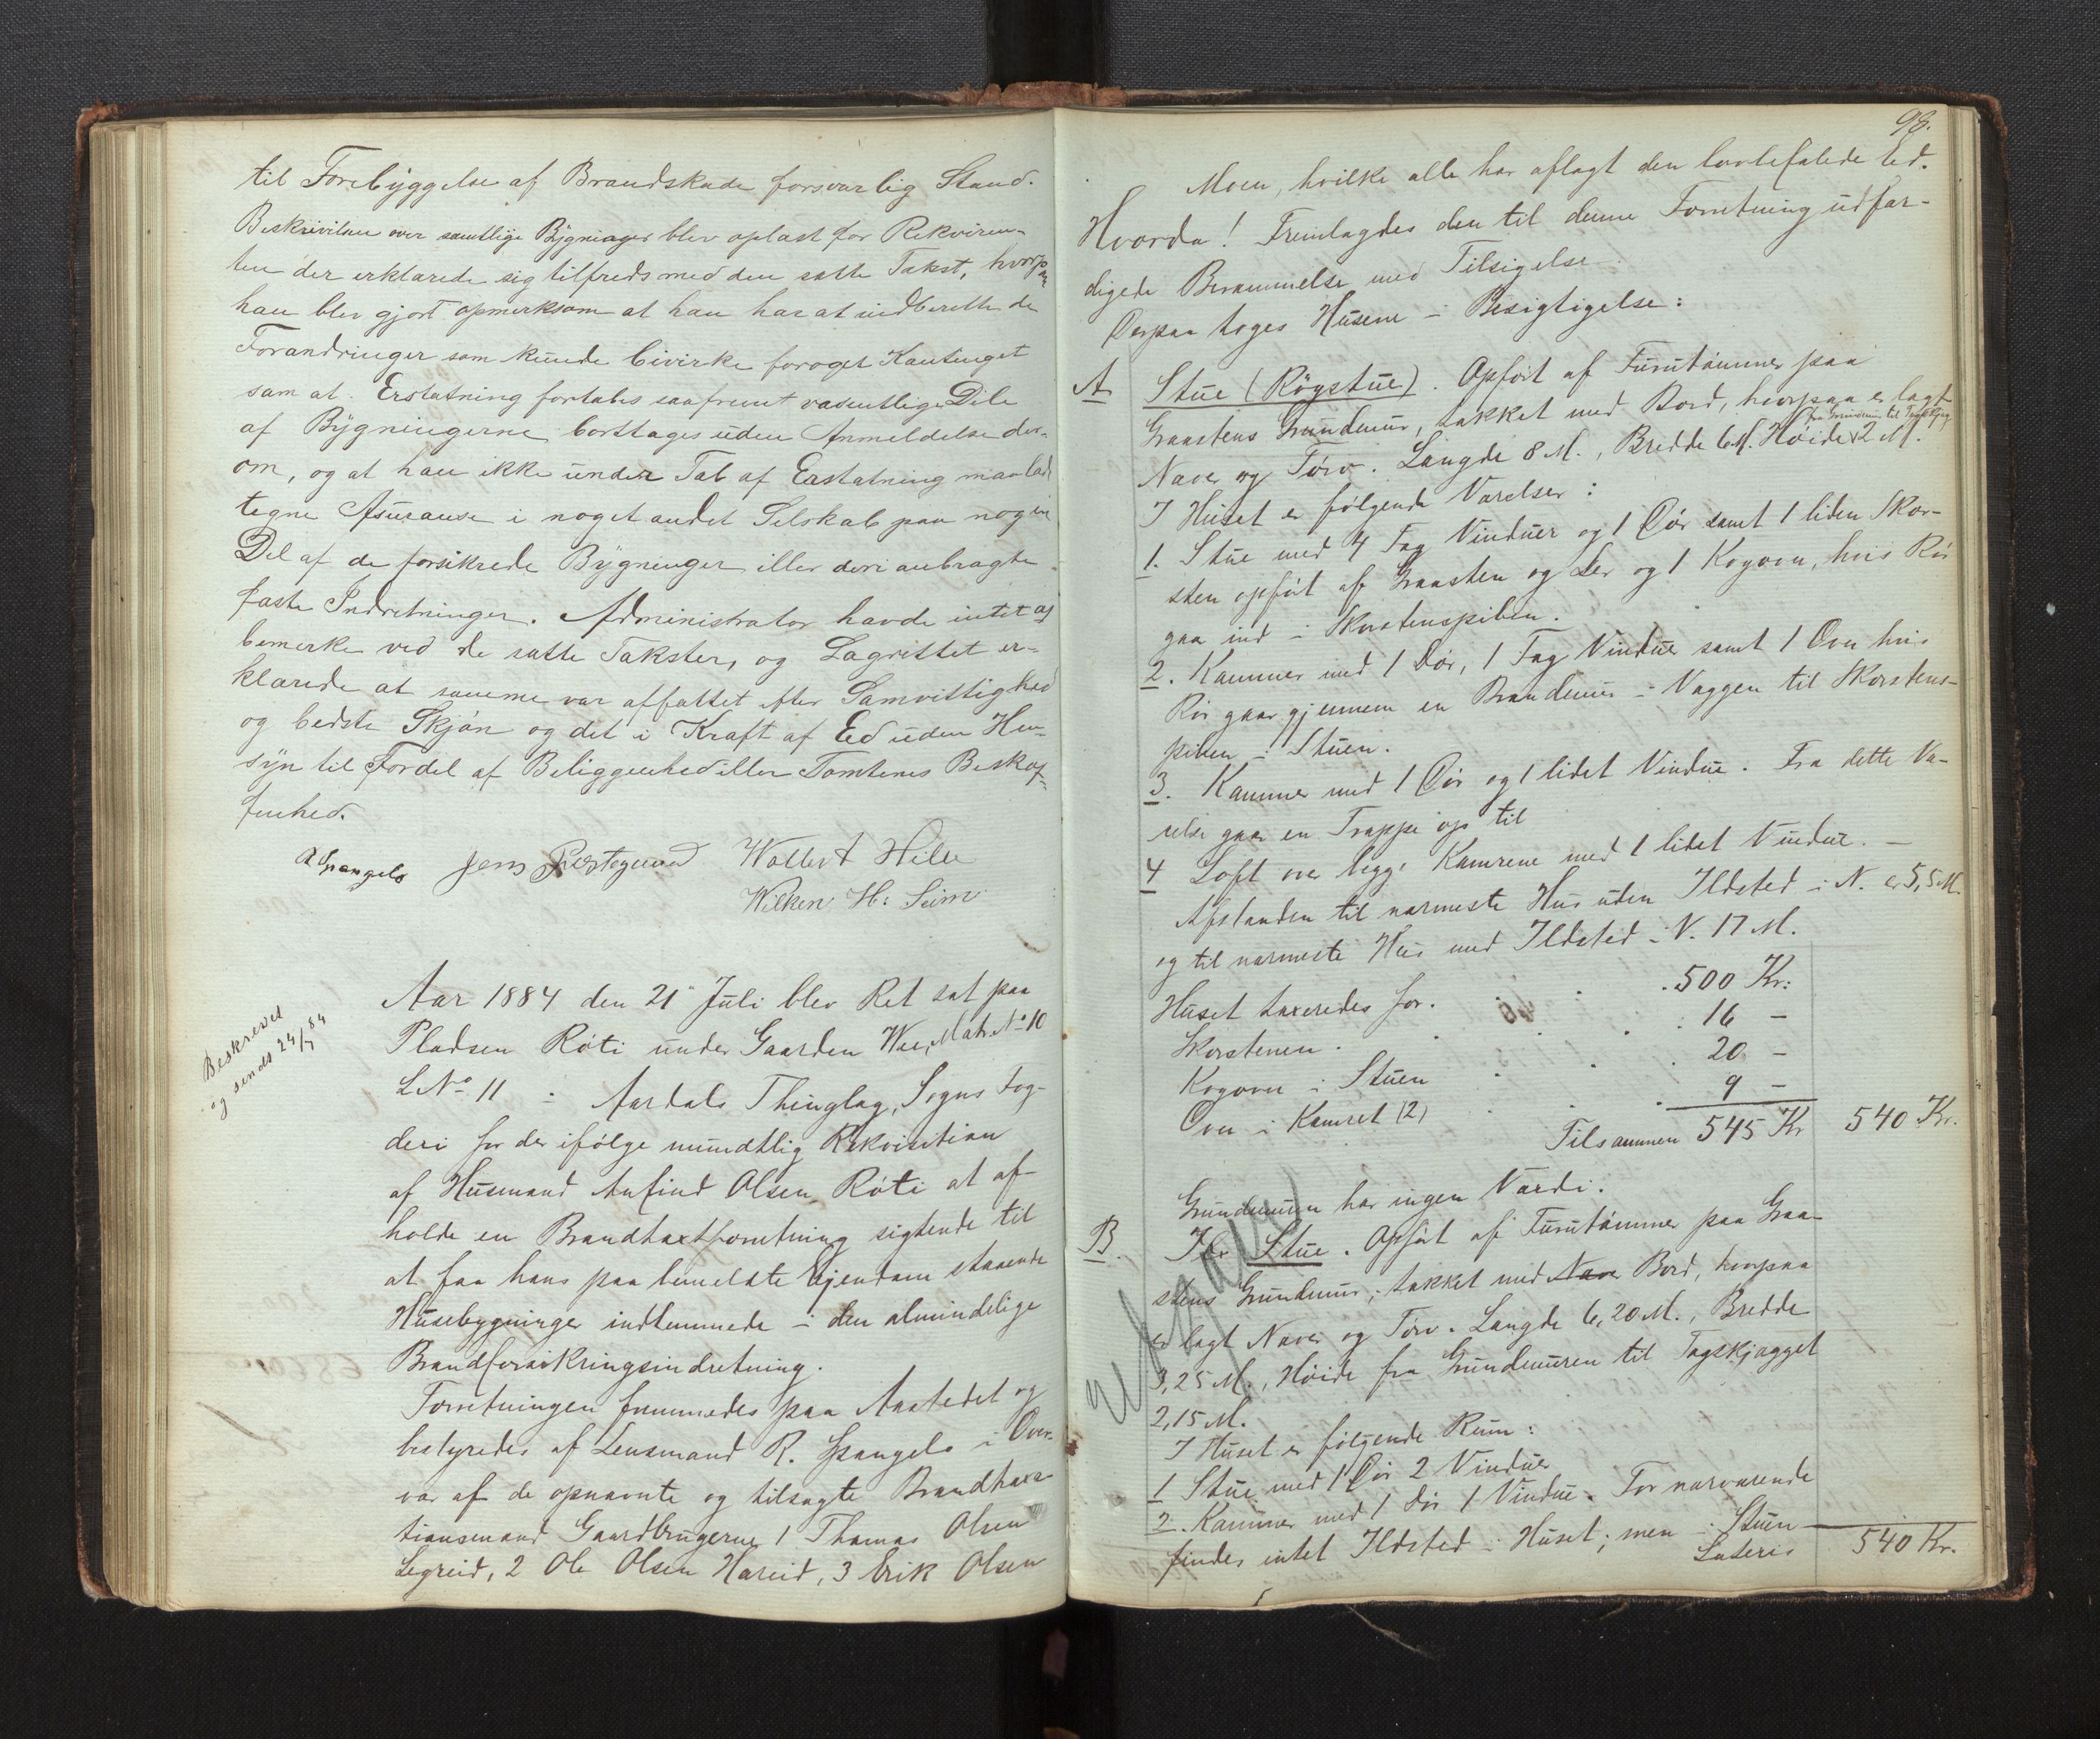 til Forebyggelse af Brandskade forsvarlig Stand.
Beskrivelsen over samtlige Bygninger blev oplæst for Rekviren-
ten der erklærede sig tilfreds med den satte Takst, hvorpaa
han blev gjort opmerksom at han har at indberette de
Forandringer som kunde bevirke forøget Kontingent
sam at Erstatning fortabes saafremt væsentlige Dele
af Bygningerne borttages uden Anmeldelse der-
om, og at han ikke under Tab af Erstatning maa lade
tegne Assurance i noget andet Selskab paa nogen
Del af de forsikrede Bygninger eller deri anbragte
faste Indretninger. Administrator havde intet at
bemerke ved de satte Takster, og Lagrettet er-
klærede at samme var affattet efter Samvittighed
og bedste Skjøn og det i Kraft af Ed uden Hen-
syn til Fordel af Beliggenhed eller Tomtenes Beskaf-
fenhed.
R Spangelo Jens Prestegaard Wollert Hille
Wilken H: Seim
Beskrevet
og sendt 24/7 84
Aar 1884 den 21 Juli blev Ret sat paa
Pladsen Røti under Gaarden Wee, Matr. No 10
L No 11 i Aardals Thinglag, Sogns Fog-
deri for der ifølge mundtlig Rekvisition
af Husmand Anfind Olsen Røti at af-
holde en Brandtaxtforretning sigtende til
at faa hans paa bemeldte Ejendom staaende
Husebygninger indlemmede i den almindelige
Brandforsikringsindretning.
Forretningen fremmedes paa Aastedet og
bestyredes af Lensmand R. Spangelo i Over-
vær af de opnævnte og tilsagte Brandtaxa-
tionsmænd Gaardbrugerne 1 Thomas Olsen
Legreid, 2 Ole Olsen Hareid, 3 Erik Olsen
98.
Moen, hvilke alle har aflagt den lovbefalede Ed.
Hvorda! Fremlagdes den til denne Forretning udfær-
digede Berammelse med Tilsigelse.
Derpaa toges Husene i Besigtigelse:
A Stue (Røgstue). Opført af Furutømmer paa
Graastens Grundmur, tækket med Bord, hvorpaa er lagt
fra Grundmur til Tagskjæg
Næver og Tørv. Længde 8 M., Bredde 6 M. Høide 2 M.
I Huset er følgende Værelser:
1. Stue med 4 Fag Vinduer og 1 Dør samt 1 liden Skor-
sten opført af Graasten og Ler og 1 Kogovn, hvis Rør
gaa ind i Skorstenspiben.
2. Kammer med 1 Dør, 1 Fag Vindue samt 1 Ovn hvis
Rør gaar gjennem en Brandmur i Væggen til Skorstens-
piben i Stuen.
3. Kammer med 1 Dør og 1 lidet Vindue. Fra dette Væ-
relse gaar en Trappe op til
4 Loft over begge Kamrene med 1 lidet Vindue. —
Afstanden til nærmeste Hus uden Ildsted i N. er 5,5 M.
og til nærmeste Hus med Ildsted i V. 17 M.
Huset taxeredes for. 500 Kr:
Skorstenen. 16 —
Kogovn i Stuen 20 —
Ovn i Kamret (2) 9 —
Tilsammen 545 Kr 540 Kr.
Grundmuren har ingen Værdi.
B. Stue. Opført af Furutømmer paa Graa-
stens Grundmur; tækket med Næve Bord, hvorpaa
er lagt Næver og Tørv. Længde 6,20 M., Bredde
3,25 M., Høide fra Grundmuren til Tagskjægget
2,15 M.
I Huset er følgende Rum:
1 Stue med 1 Dør 2 Vinduer
2. Kammer med 1 Dør 1 Vindue. For nærværende
findes intet Ildsted i Huset; men i Stuen
Lateris 540 Kr.
Udgaar